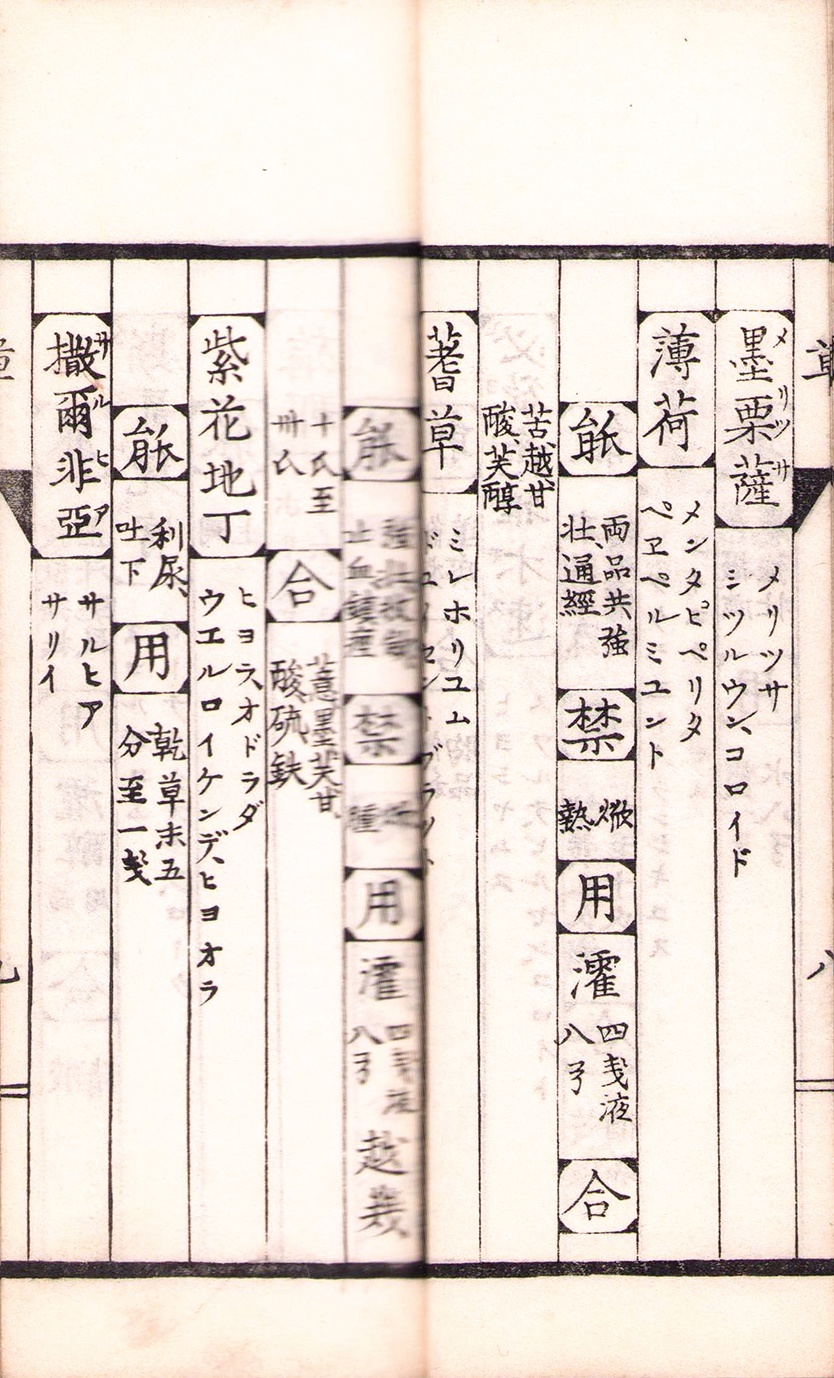 墨栗薩
メリツサ
メリツサ
ミツルウン、コロイド
薄荷
メンタピペリタ
ペヱペルミユント
能
両品共強
壮、通經
禁
焮
熱
用
濯
四戔液
八ゟ
合
苦、越、甘
酸、芙、醇
蓍草
ミレホリユム
能
止血鎮痙
禁
用
濯
四戔液
八ゟ
越幾
十氏至
卅氏
合
薏、墨、芙、甘、
酸、硫、鉄
紫花地丁
ヒヨラ、オドラダ
ウエルロイケンデ、ヒヨオラ
能
利尿、
吐下
用
乾草末五
分至一戔
撒爾非亞
サルヒア
サルヒア
サリイ